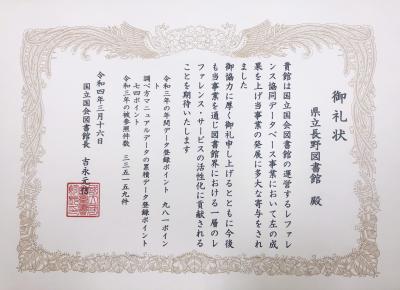 御礼状
県立長野図書館 殿
貴館は国立国会図書館の運営するレファレ
ンス協同データベース事業において左の成
果を上げ当事業の発展に多大な寄与をされ
ました
御協力に厚く御礼申し上げるとともに今後
も当事業を通じ図書館界における一層のレ
ファレンス・サービスの活性化に貢献される
ことを期待いたします
令和三年の年間データ登録ポイント 九八一ポイント
調べ方マニュアルデータの累積データ登録ポイント
七四ポイント
令和三年の被参照件数 三三五一五九件
令和四年三月十六日
国立国会図書館長 吉永元信